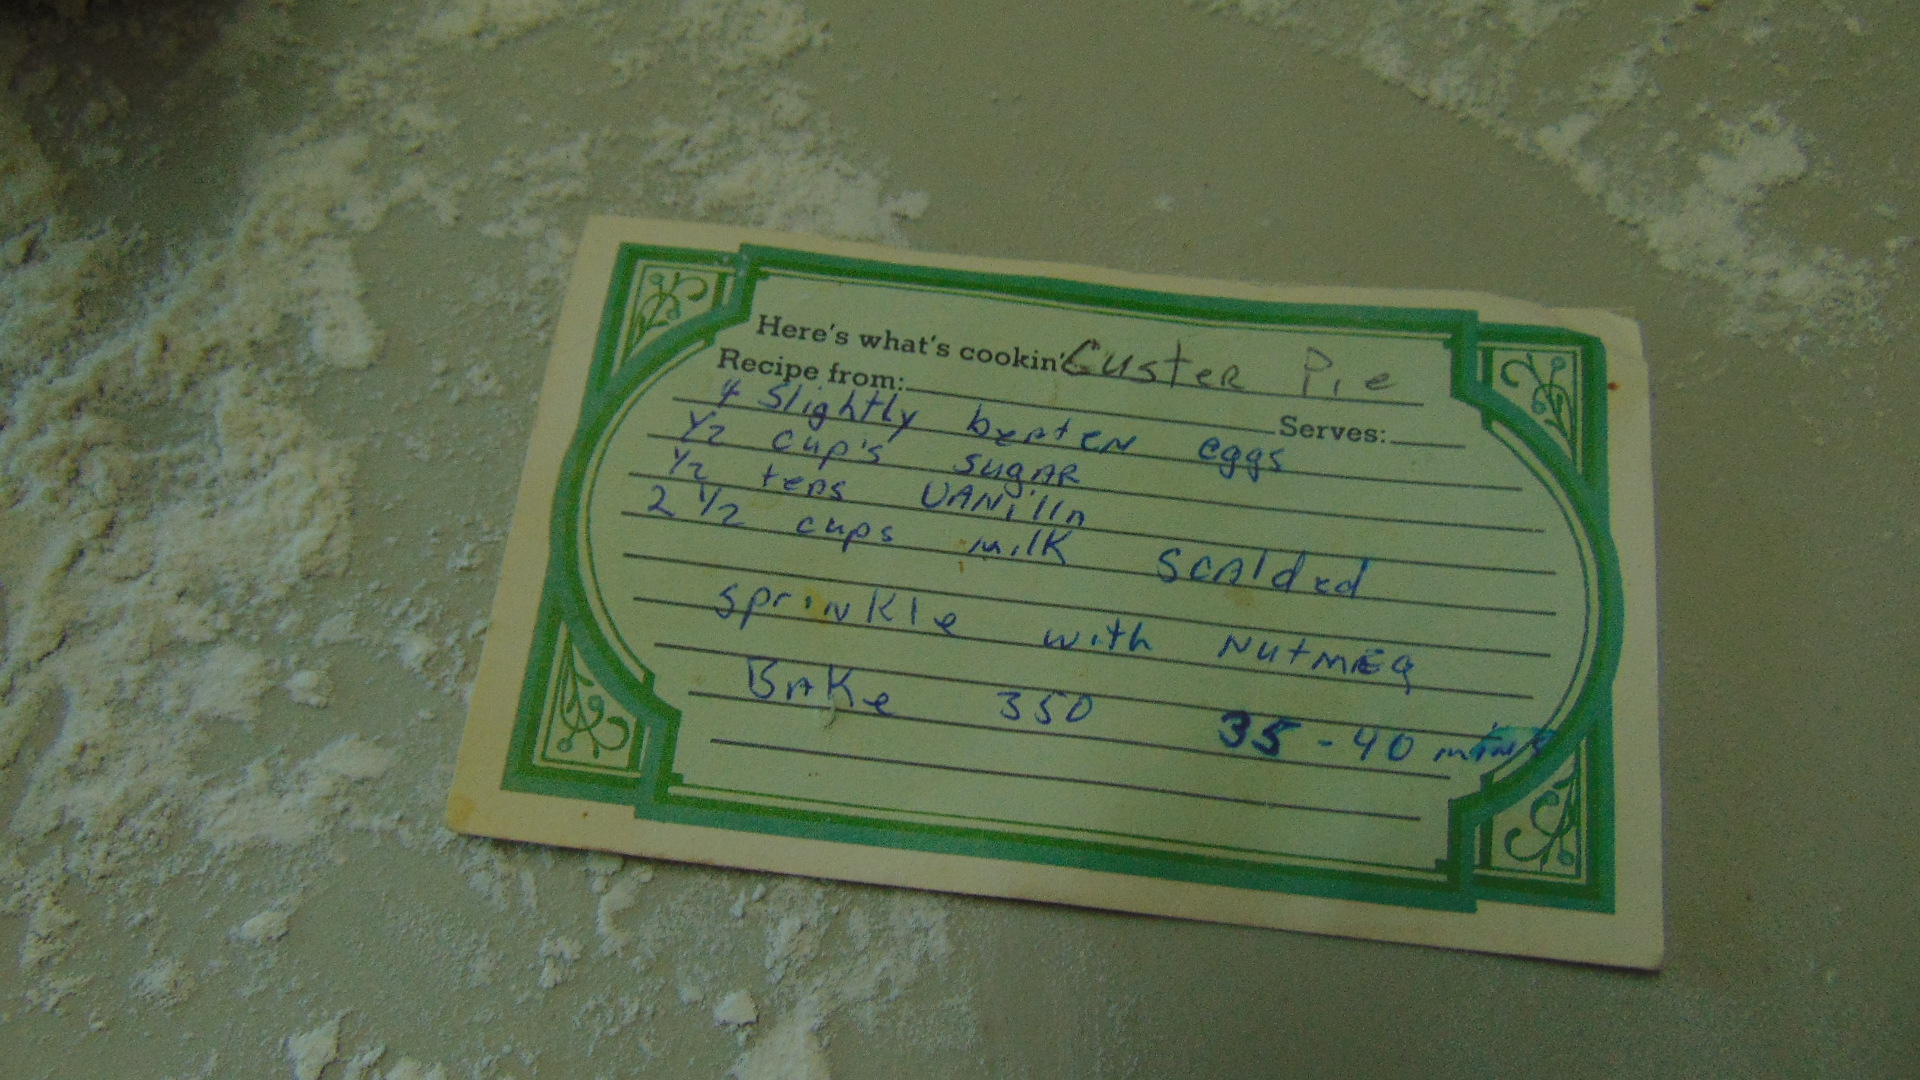 Here's what's cookin' Custer Pie
Recipe from: Serves:
4 Slightly beaten eggs
1/2 cup's sugar
1/2 teas vanilla
2 1/2 cups milk scalded
sprinkle with Nutmeg
Bake 350 35-40 mins